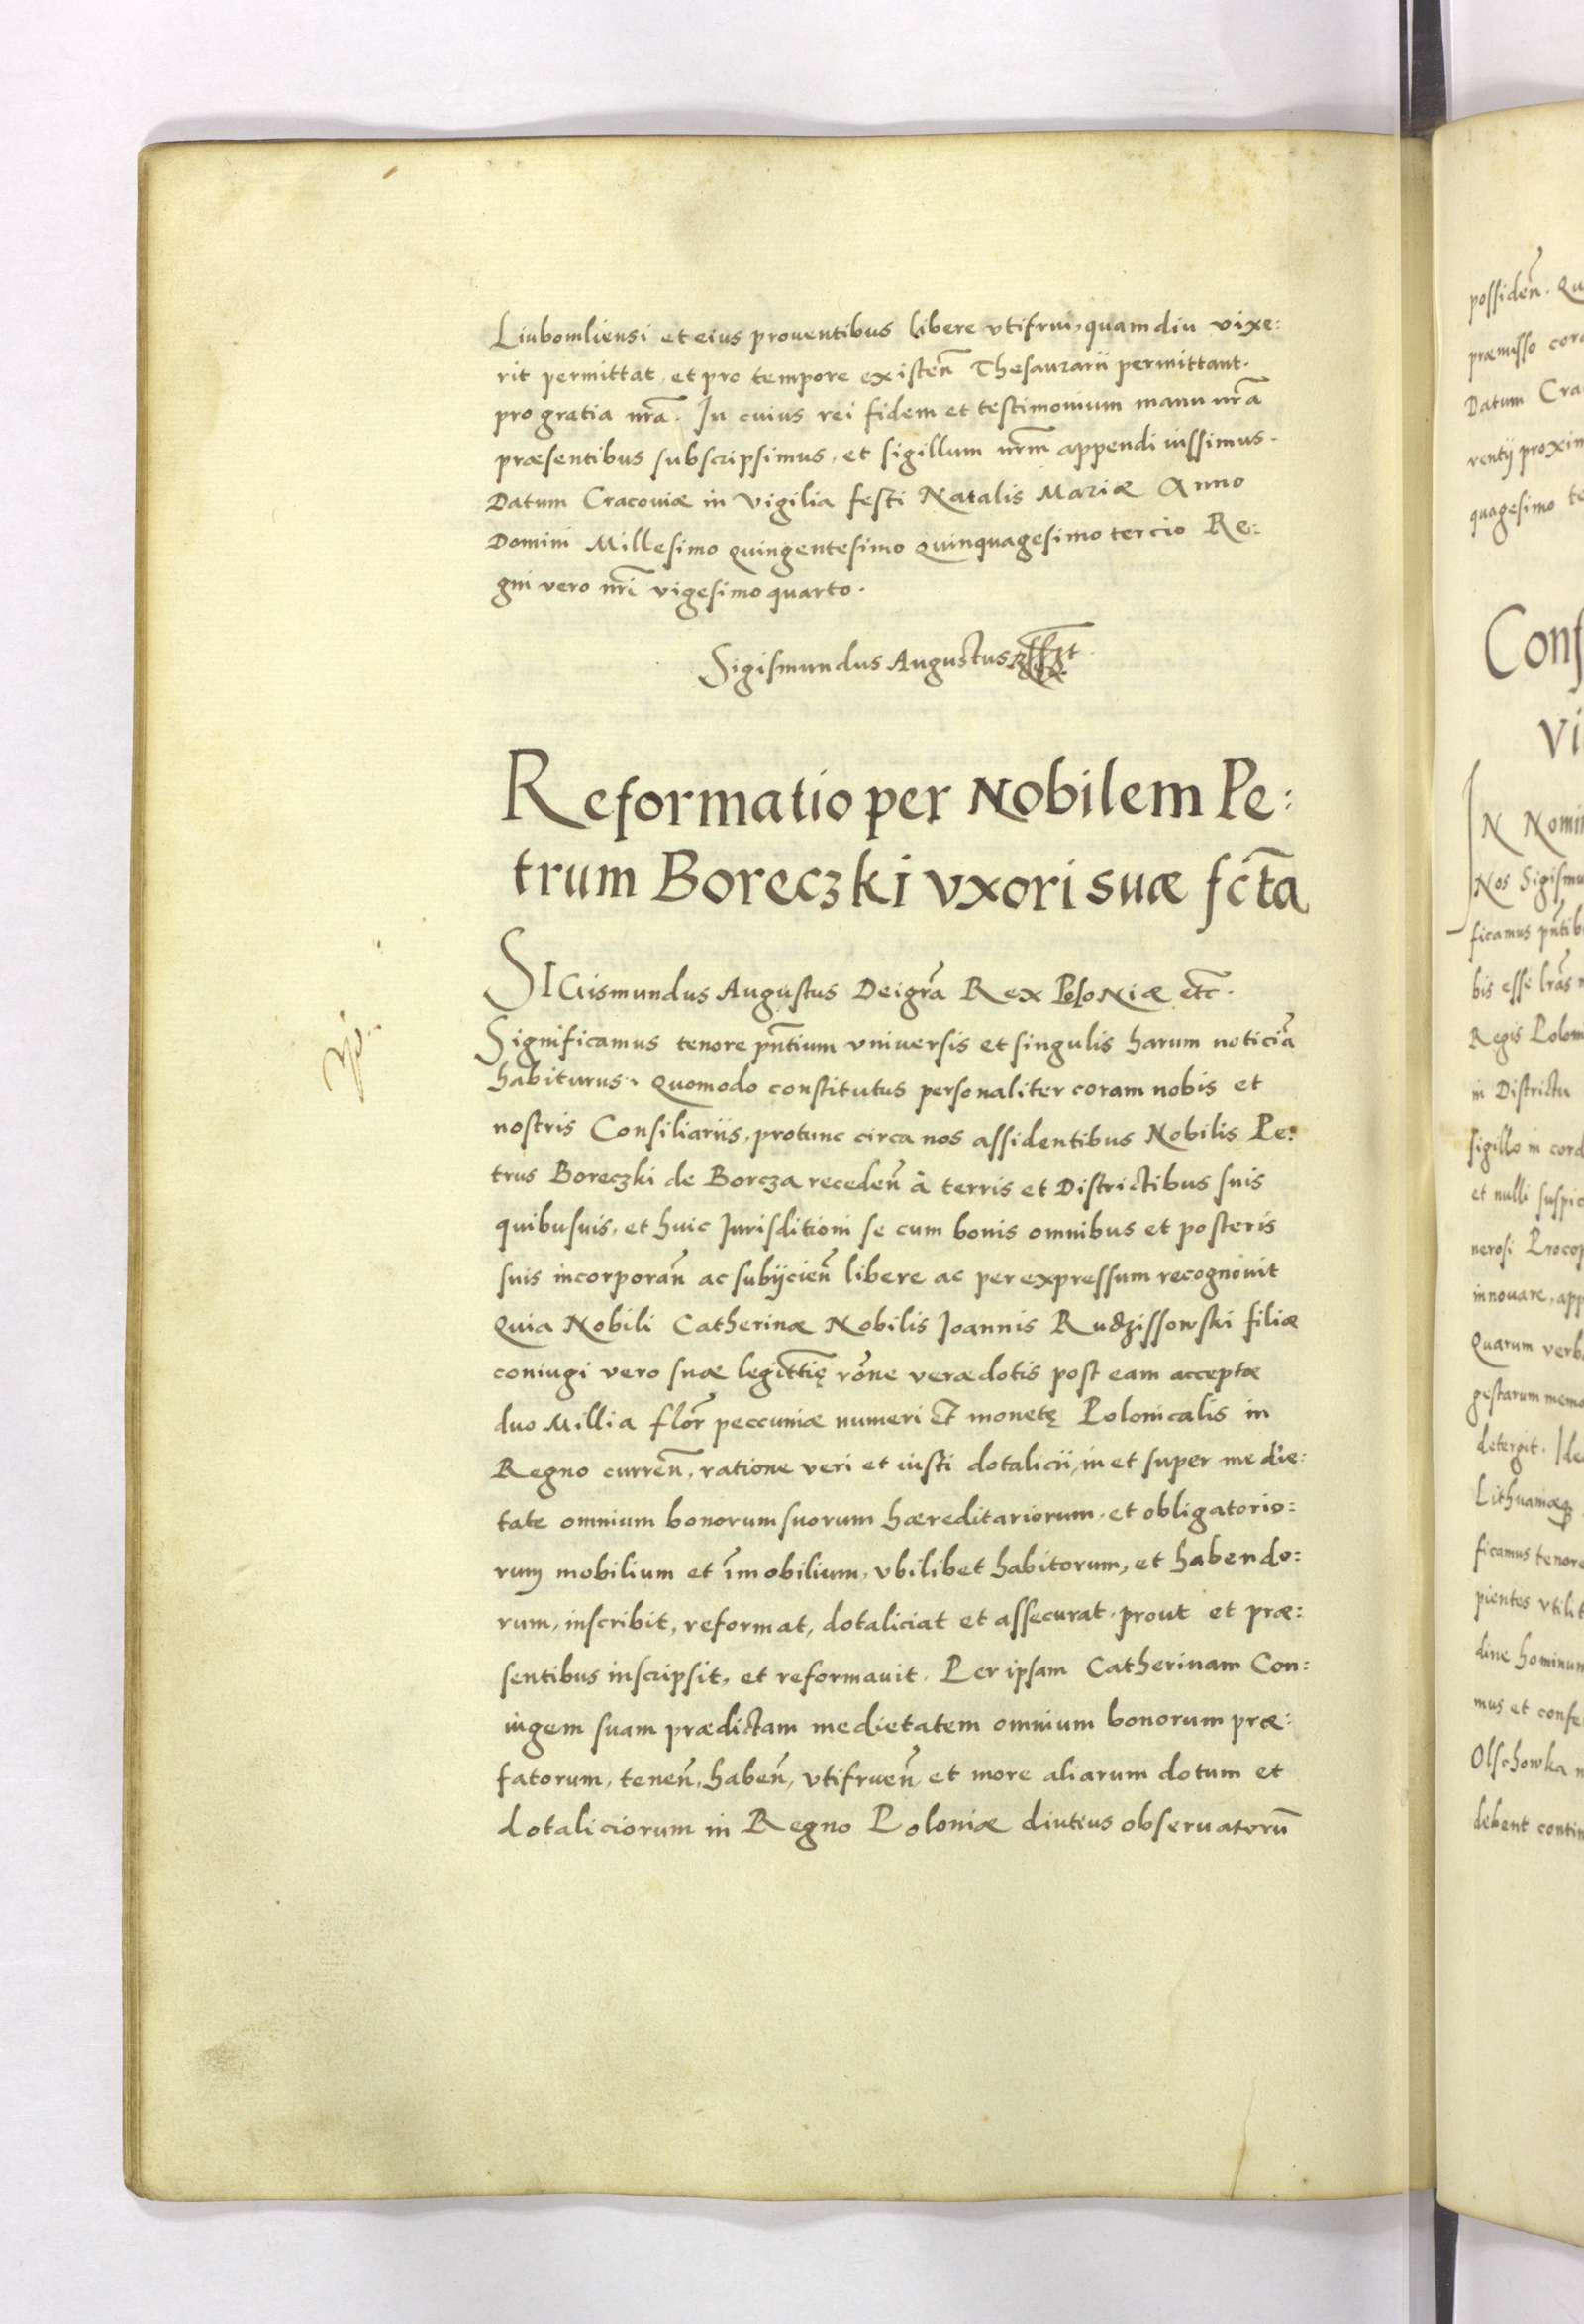 Liubomliensi et eius prouentibus libere vtifrui, quam diu vixe:
rit permittat, et pro tempore existen̄ Thesaurarii permittant.
pro gratia nr̄a. In cuius rei fidem et testimonium manu nr̄a
præsentibus subscripsimus, et sigillum nr̄m appendi iussimus.
Datum Cracouiæ in Vigilia festi Natalis Mariæ Anno
Domini Millesimo quingentesimo quinquagesimo tercio Re:
gni vero nr̄i vigesimo quarto.
Sigismundus Augustus
Reformatio per Nobilem Pe:
trum Boreczki vxori suæ fct̄a
SIGismundus Augustus Dei gr̄a Rex Poloniæ etc̄.
Significamus tenore pn̄tium vniuersis et singulis harum noticiā
habiturus. Quomodo constitutus personaliter coram nobis et
nostris Consiliariis, protunc circa nos assidentibus Nobilis Pe:
trus Boreczki de Borcza receden̄ à terris et Districtibus suis
quibusuis, et huic Jurisditioni se cum bonis omnibus et posteris
suis incorporan̄ ac subijcien̄ libere ac per expressum recognouit
Quia Nobili Catherinæ Nobilis Joannis Rudzissowski filiæ
coniugi vero suæ legitt̄ię rōne veræ dotis post eam acceptæ
duo Millia flor̄ peccuniæ numeri et monetę Polonicalis in
Regno curren̄, ratione veri et iusti dotalicii, in et super medie:
tate omnium bonorum suorum hæreditariorum, et obligatorio:
rum mobilium et īmobilium, vbilibet habitorum, et habendo:
rum, inscribit, reformat, dotaliciat et assecurat, prout et præ:
sentibus inscripsit, et reformauit. Per ipsam Catherinam Con:
iugem suam prædictam medietatem omnium bonorum præ:
fatorum, tenen̄, haben̄, vtifruen̄ et more aliarum dotum et
dotaliciorum in Regno Poloniæ diutius obseruatorū
possiden̄. Qu
præmisso cor
Datum Cra
rentij proxim
quagesimo te
Conf
vi
IN Nomi
Nos Sigismu
ficamus pn̄tib
bis esse lr̄as
Regis Polon
in Districtu
sigillo in cord
et nulli suspic
nerosi Procop
innouare, app
Quarum verb
gestarum memo
detergit. Ide
Lithuaniæq
ficamus tenore
pientes vtilit
dine hominum
mus et confe
Olschowka
debent contin